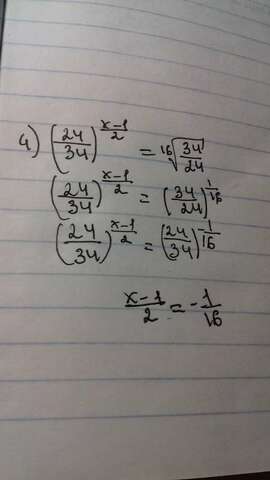 4) (24/34)^((x-1)/2) = ¹⁶√(34/24)
(24/34)^((x-1)/2) = (34/24)^(1/16)
(24/34)^((x-1)/2) = (24/34)^(-1/16)
(x-1)/2 = -1/16